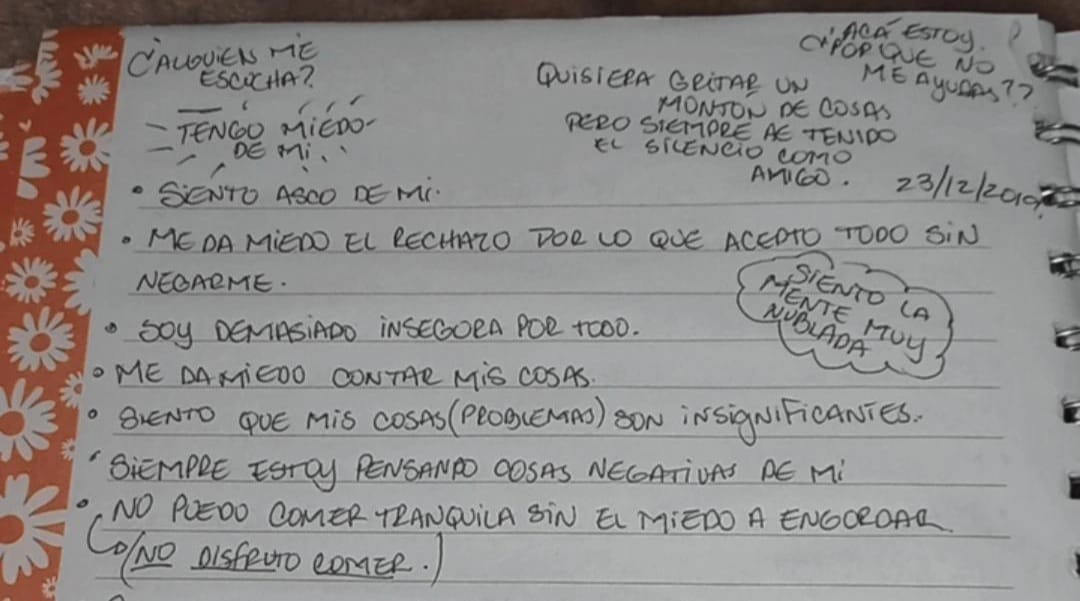 ¿ALGUIEN ME
ESCUCHA?
TENGO MIEDO
DE MI..
QUISIERA GRITAR UN
MONTÓN DE COSAS
PERO SIEMPRE AE TENIDO
EL SILENCIO COMO
AMIGO.
ACÁ ESTOY.
¿POR QUE NO
ME AYUDAS??
23/12/2019
• SIENTO ASCO DE MI.
• ME DA MIEDO EL RECHAZO POR LO QUE ACEPTO TODO SIN
NEGARME.
SIENTO LA
MENTE MUY
NUBLADA
• SOY DEMASIADO INSEGURA POR TODO.
• ME DA MIEDO CONTAR MIS COSAS.
• SIENTO QUE MIS COSAS (PROBLEMAS) SON INSIGNIFICANTES..
• SIEMPRE ESTOY PENSANDO COSAS NEGATIVAS DE MI
• NO PUEDO COMER TRANQUILA SIN EL MIEDO A ENGORDAR.
(NO DISFRUTO COMER.)